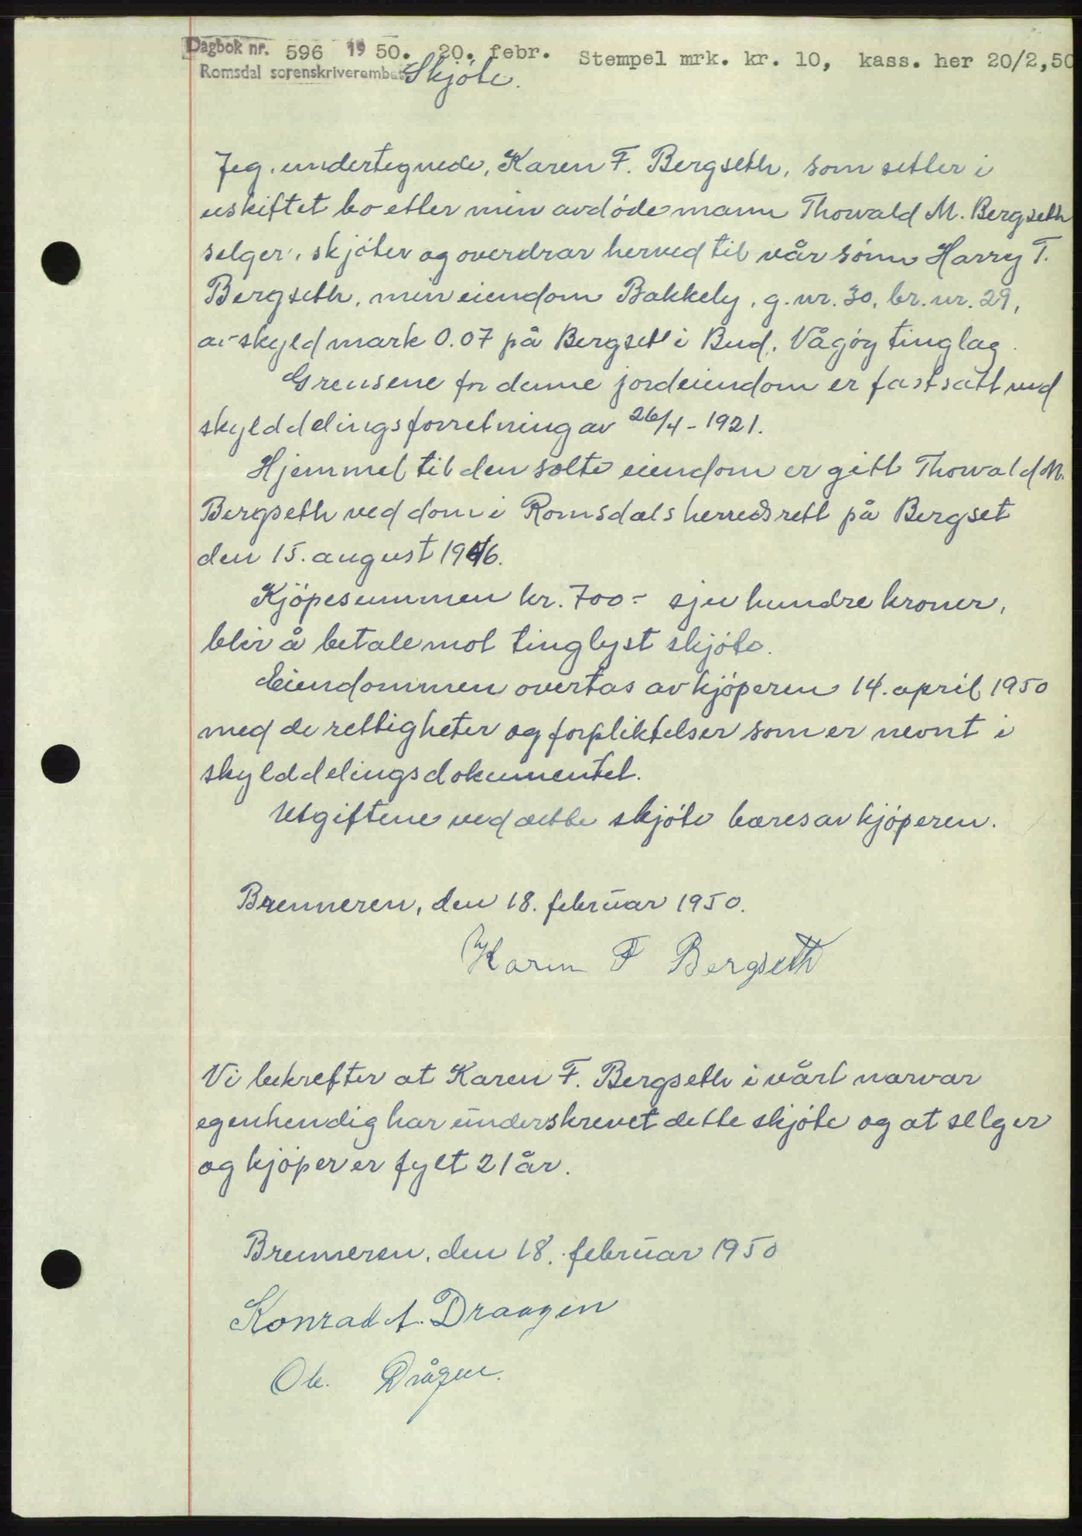 Dagbok nr. 596 19 50. 20. febr. Stempel mrk. kr. 10, kass. her 20/2,50
Romsdal sorenskriverembe
Skjöte.
Jeg, undertegnede, Karen F. Bergseth, som sitter i
uskiftet bo etter min avdöde mann Thorvald M. Bergseth
selger, skjöter og overdrar herved til vår sönn Harry T.
Bergseth, min eiendom Bakkely, g.nr. 30, br.nr. 29,
av skyld mark 0.07 på Bergset i Bud, Vågöy tinglag.
Grensene for denne jordeiendom er fastsatt ved
skylddelingsforretning av 26/4 - 1921.
Hjemmel til den solte eiendom er gitt Thorvald M.
Bergseth ved dom i Romsdals herredsrett på Bergset
den 15. august 1946.
Kjöpesummen kr. 700.- sju hundre kroner,
blir å betale mot tinglyst skjöte.
Eiendommen overtas av kjöperen 14. april 1950
med de rettigheter og forpliktelser som er nevnt i
skylddelingsdokumentet.
Utgiftene ved dette skjöte bæres av kjöperen.
Brenneren, den 18. februar 1950.
Karen F Bergseth
Vi bekrefter at Karen F. Bergseth i vårt nærvær
egenhendig har underskrevet dette skjöte og at selger
og kjöper er fylt 21 år.
Brenneren, den 18. februar 1950
Konrad A. Draagen
Ole. Drågen.